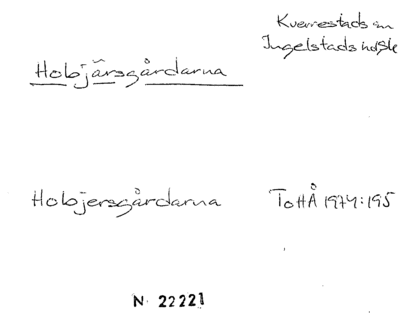 Kverrestads sn
Ingelstads hd Sk
Hobjärsgårdarna
Hobjersgårdarna ToHÅ 1974:195
N 22221